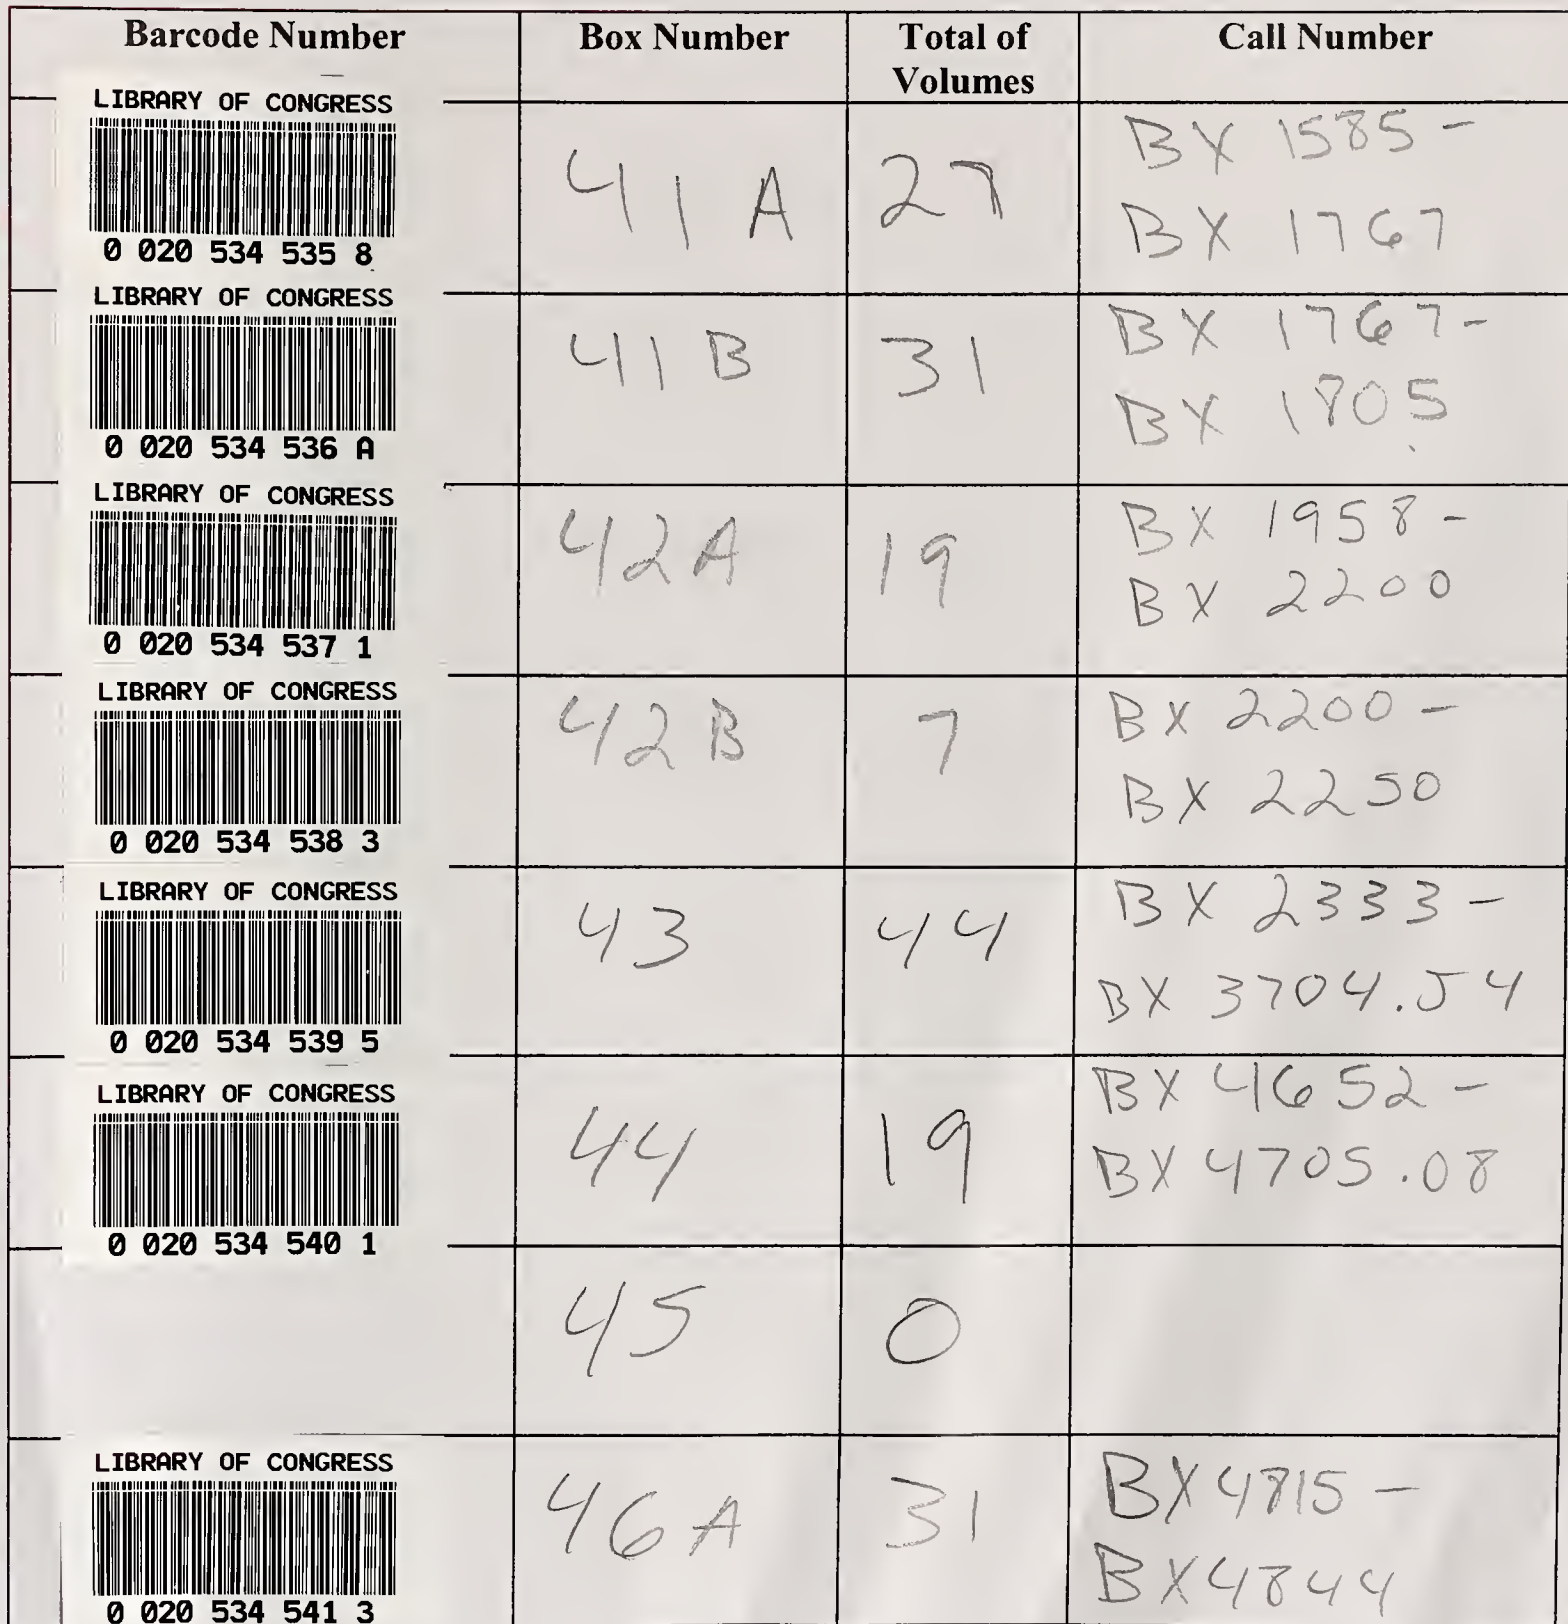 Barcode Number Box Number Total of Volumes Call Number
LIBRARY OF CONGRESS
0 020 534 535 8
41A 27 BX 1585 -
BX 1767
LIBRARY OF CONGRESS
0 020 534 536 A
41B 31 BX 1767 -
BX 1805
LIBRARY OF CONGRESS
0 020 534 537 1
42A 19 BX 1958 -
BX 2200
LIBRARY OF CONGRESS
0 020 534 538 3
42B 7 BX 2200 -
BX 2250
LIBRARY OF CONGRESS
0 020 534 539 5
43 44 BX 2333 -
BX 3704.54
LIBRARY OF CONGRESS
0 020 534 540 1
44 19 BX 4652 -
BX 4705.08
45 0
LIBRARY OF CONGRESS
0 020 534 541 3
46A 31 BX4815 -
BX4844